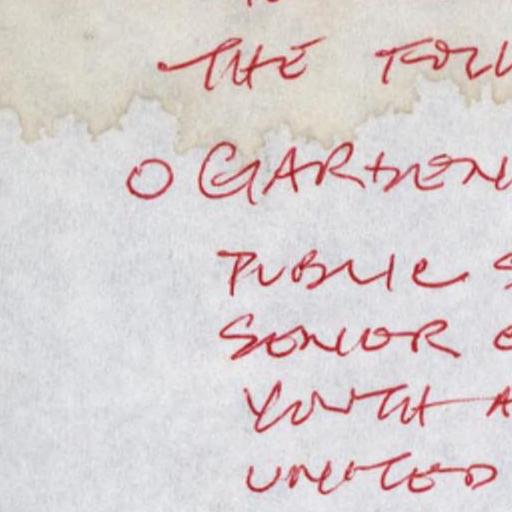 THE FOLL
O GARDEN
PUBLIC S
SENIOR C
YOUTH A
UNITED